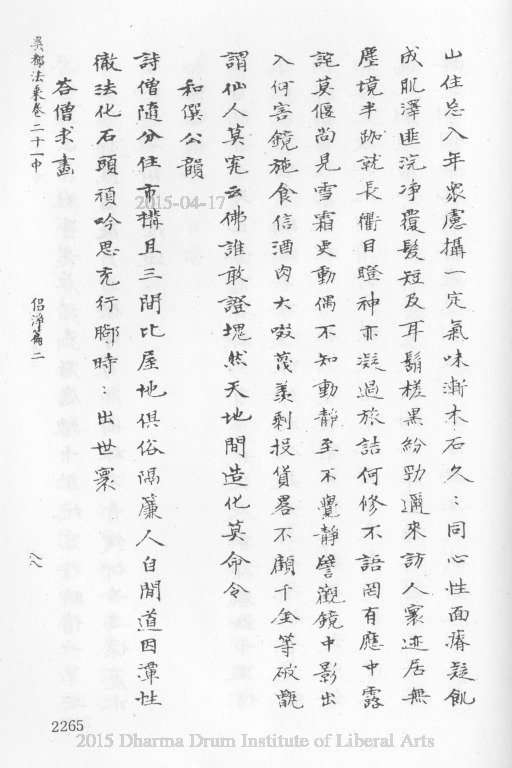 山住忘入年衆慮攝一定氣味漸木石久〻同心性面瘠疑飢
成肌澤匪浣净覆髮短及耳鬍槎黑紛勁邇來訪人寰迹居無
塵境半跏就長衢目瞪神亦凝過旅詰何修不語罔有應中露
詫莫偃尚見雪霜更動偶不知動靜至不覺靜譬觀鏡中影出
入何害鏡施食信酒肉大啜蔑羨剩投貨畧不顧千金等破甑
謂仙人莫究云佛誰敢證塊然天地間造化莫命令
和僎公韻
詩僧隨分住市構且三間比屋地俱俗隔簾人自閒道因潭性
徹法化石頭頑吟思充行腳時〻出世寰
答僧求畫
吳都法乘卷二十一中
侣淨篇二
八八
2265
2015-04-17
2015 Dharma Drum Institute of Liberal Arts